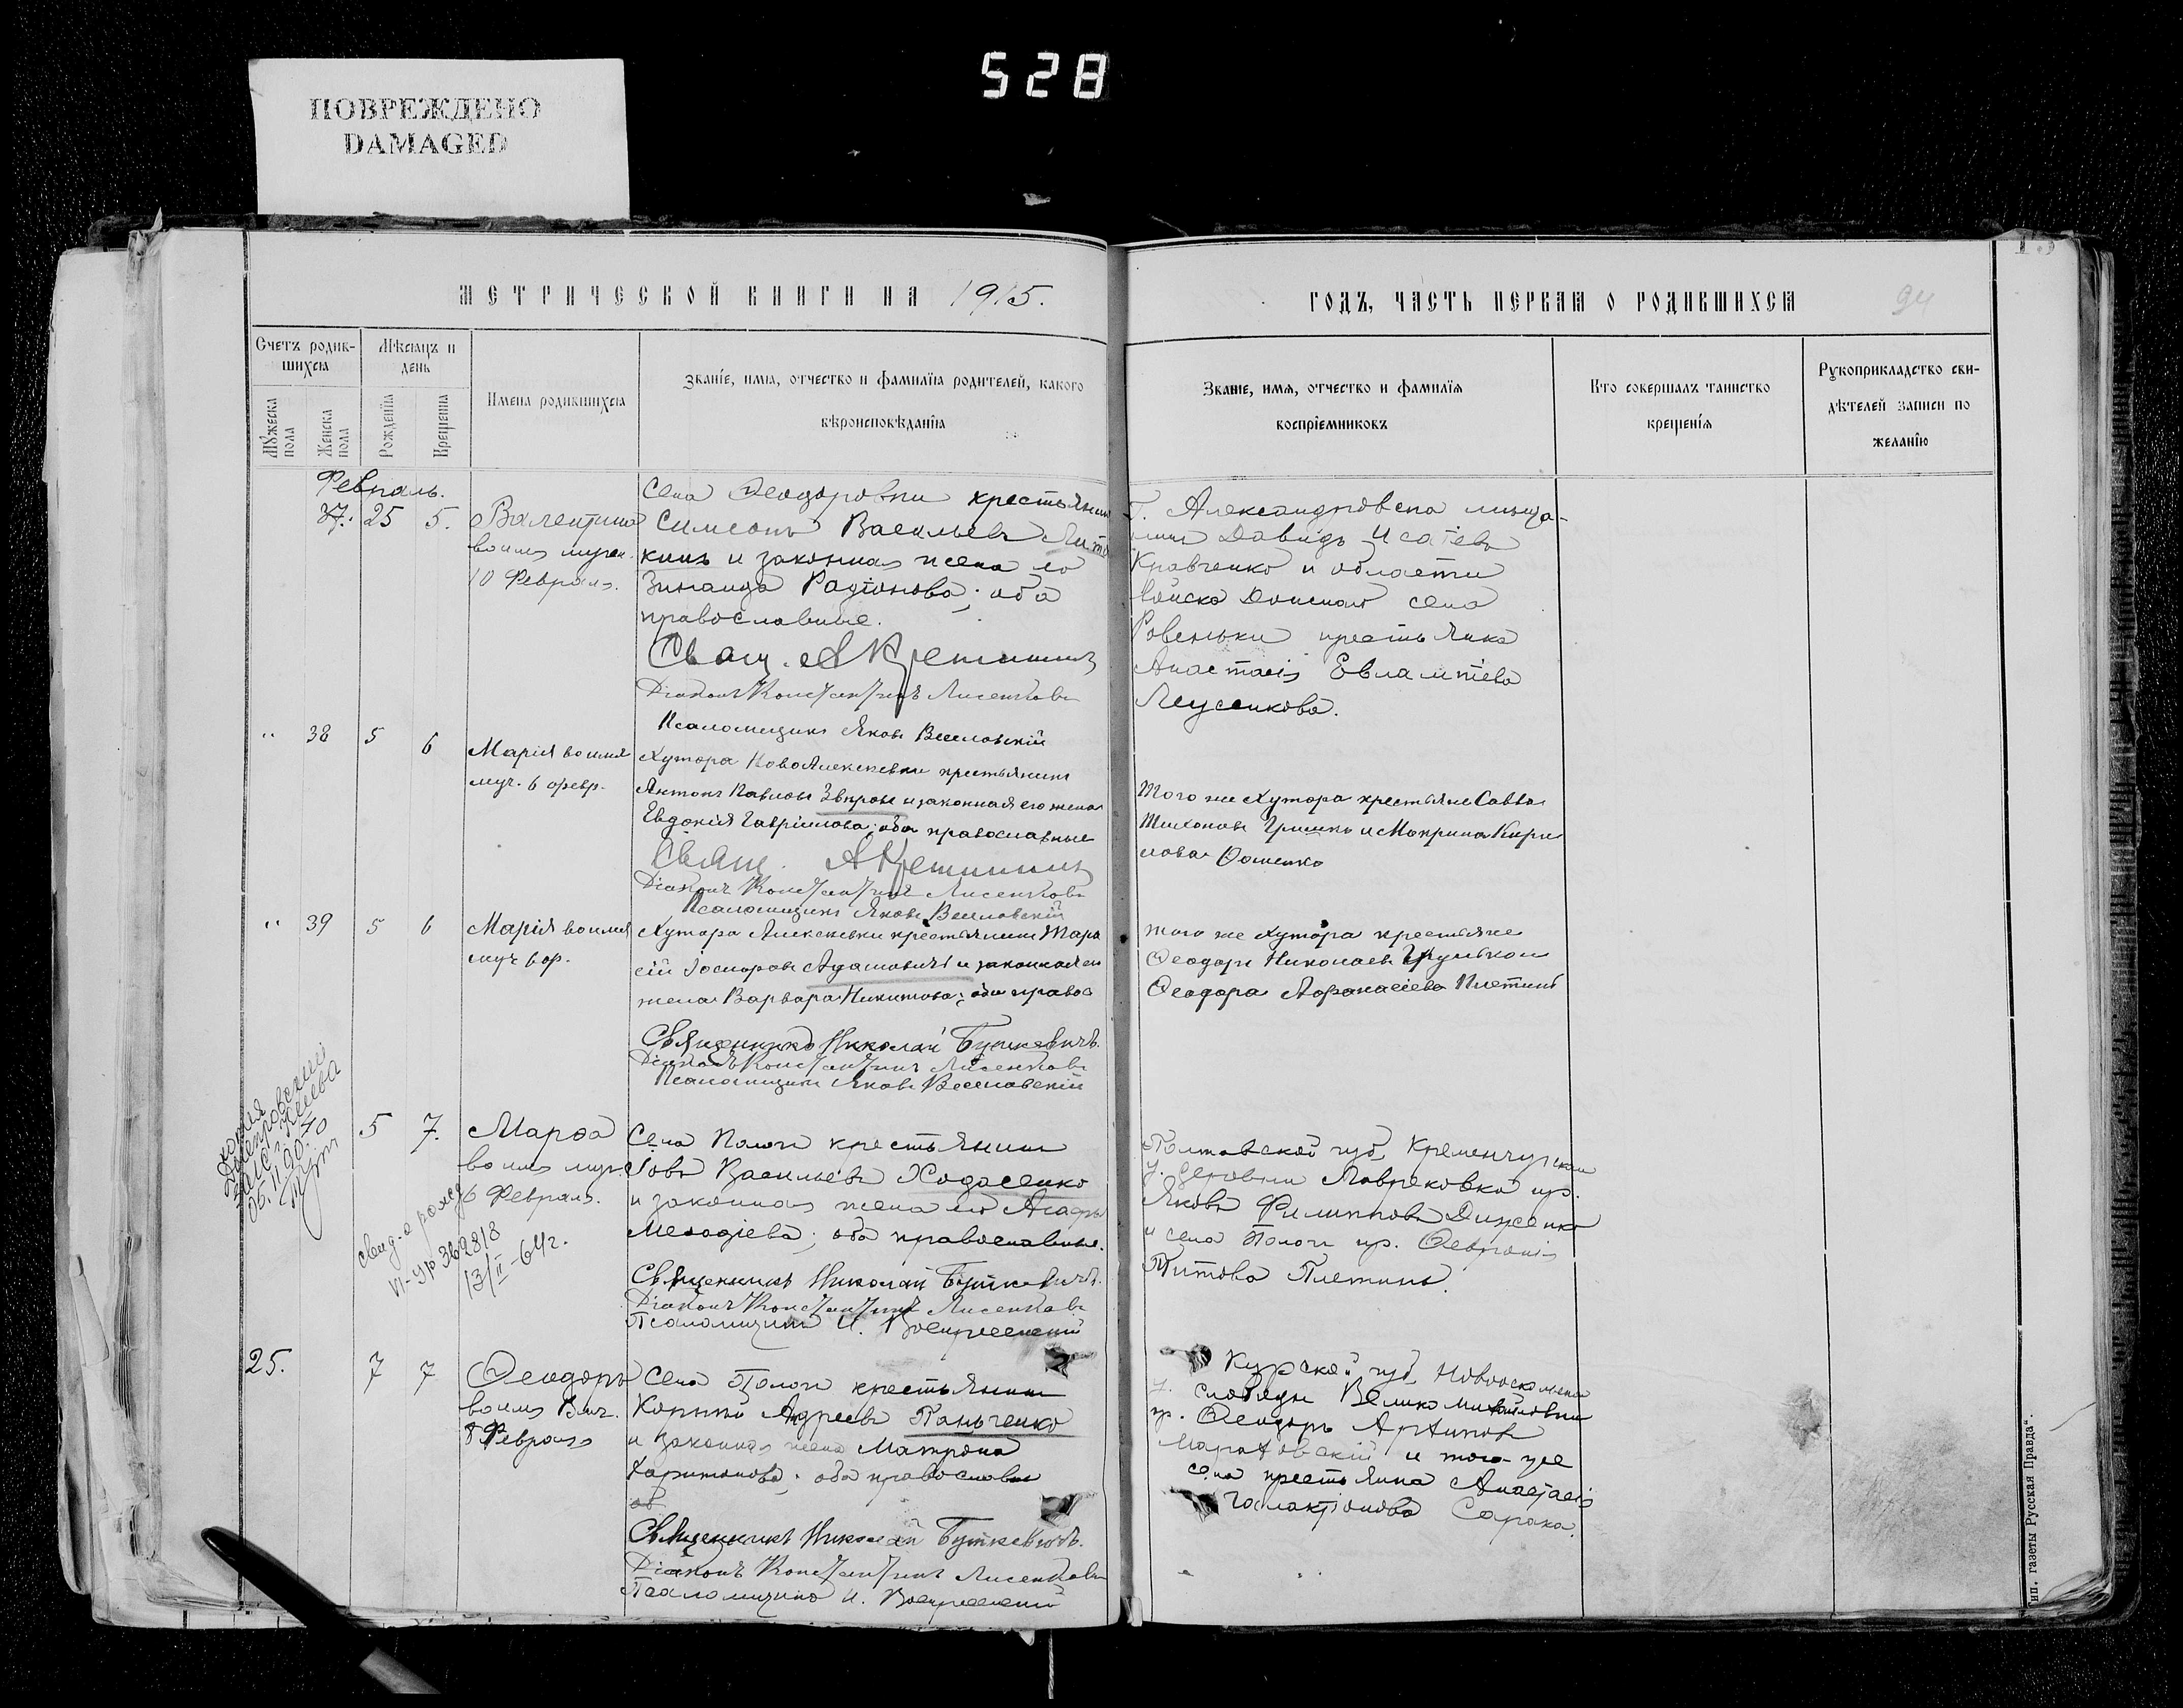 528
ПОВРЕЖДЕНО
DAMAGED
МЕТРИЧЕСКОЙ КНИГИ НА 1915.
ГОДЪ, ЧАСТЬ ПЕРВАЯ О РОДИВШИХСЯ
94
Счетъ родив-
шихся
Мужеска
пола
Женска
пола
Мѣсяцъ и
день
Рожденїя
Крещенїя
Имена родившихся
Званїе, имя, отчество и фамилїя родителей, какого
вѣроисповѣданїя
Званїе, имя, отчество и фамилїя
воспрїемниковъ
Кто совершалъ таинство
крещенїя
Рукоприкладство сви-
дѣтелей записи по
желанїю
Февраль.
37. 25 5.
Валентина
во имя мучен.
10 Февраля.
Села Ѳеодоровки крестьянинъ
Симеонъ Васильевъ
кинъ и законная жена его
Зинаида Радіонова; оба
православные.
Свящ. А Кретининъ
Діаконъ Константинъ Лисенковъ
Псаломщикъ Яковъ Веселовскій
Г. Александровска мѣща-
нинъ Давидъ Исаіевъ
Кравченко и области
войска Донскаго села
Ровеньки крестьянка
Анастасія Евлампіева
" 38 5 6
Марія во имя
муч. 6 февр.
Хутора НовоАлексеевки крестьянинъ
Антонъ Павловъ Звѣревъ и законная его жена
Евдокія Гавріилова; оба православные
Свящ. А Кретининъ
Діаконъ Константинъ Лисенковъ
Псаломщикъ Яковъ Веселовскій
Того же Хутора крестьяне Савва
Тихоновъ Гришко и Мокрина Кири
лова Фоменко
" 39 5 6
Марія во имя
муч 6 ф.
Хутора Алексеевки крестьянинъ Тара
сій Адамовичъ и законная его
жена Варвара Никитова; оба правос
Священникъ Николай Буткевичъ.
Діаконъ Константинъ Лисенковъ
Псаломщикъ Яковъ Веселовскій
того же хутора крестьяне
Ѳеодоръ Николаевъ
Ѳеодора Аѳанасіева
копия
Днепровский
ЗАГС г. Киева
06.11.90.
5 7.
Марѳа
во имя муч.
6 Февраля.
свид-о рожд
VI-УР 369818
13/II-64г.
Села Пологи крестьянинъ
Іовъ Васильевъ Ходосенко
и законная жена его Агафія
Меѳодіева; оба православные.
Священникъ Николай Буткевичъ.
Діаконъ Константинъ Лисенковъ
Псаломщикъ И. Воскресенскій
Полтавской губ. Кременчугскаго
у. деревни кр.
Яковъ Филипповъ
и села Пологи кр. Ѳевронія
Титова
25. 7 7
Ѳеодоръ
во имя Вмч.
8 Февраля
Села Пологи крестьянинъ
Корнилій Андреевъ Панченко
и законная жена Матрона
Харитонова; оба православн
об
Священникъ Николай Буткевичъ.
Діаконъ Константинъ Лисенковъ
Псаломщикъ И. Воскресенскій
Курской губ. Новооскольскаго
у. слободы Велико Михайловки
кр. Ѳеодоръ Архиповъ
и того-же
села крестьянка Анастасія
Галактіонова Сорока.
Тип. газеты Русская Правда".